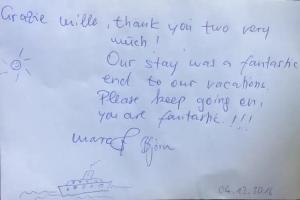 Grazie mille, thank you two very
much!
Our stay was a fantastic
end to our vacations.
Please keep going on,
you are fantastic!!!
Björn
04.12.2016